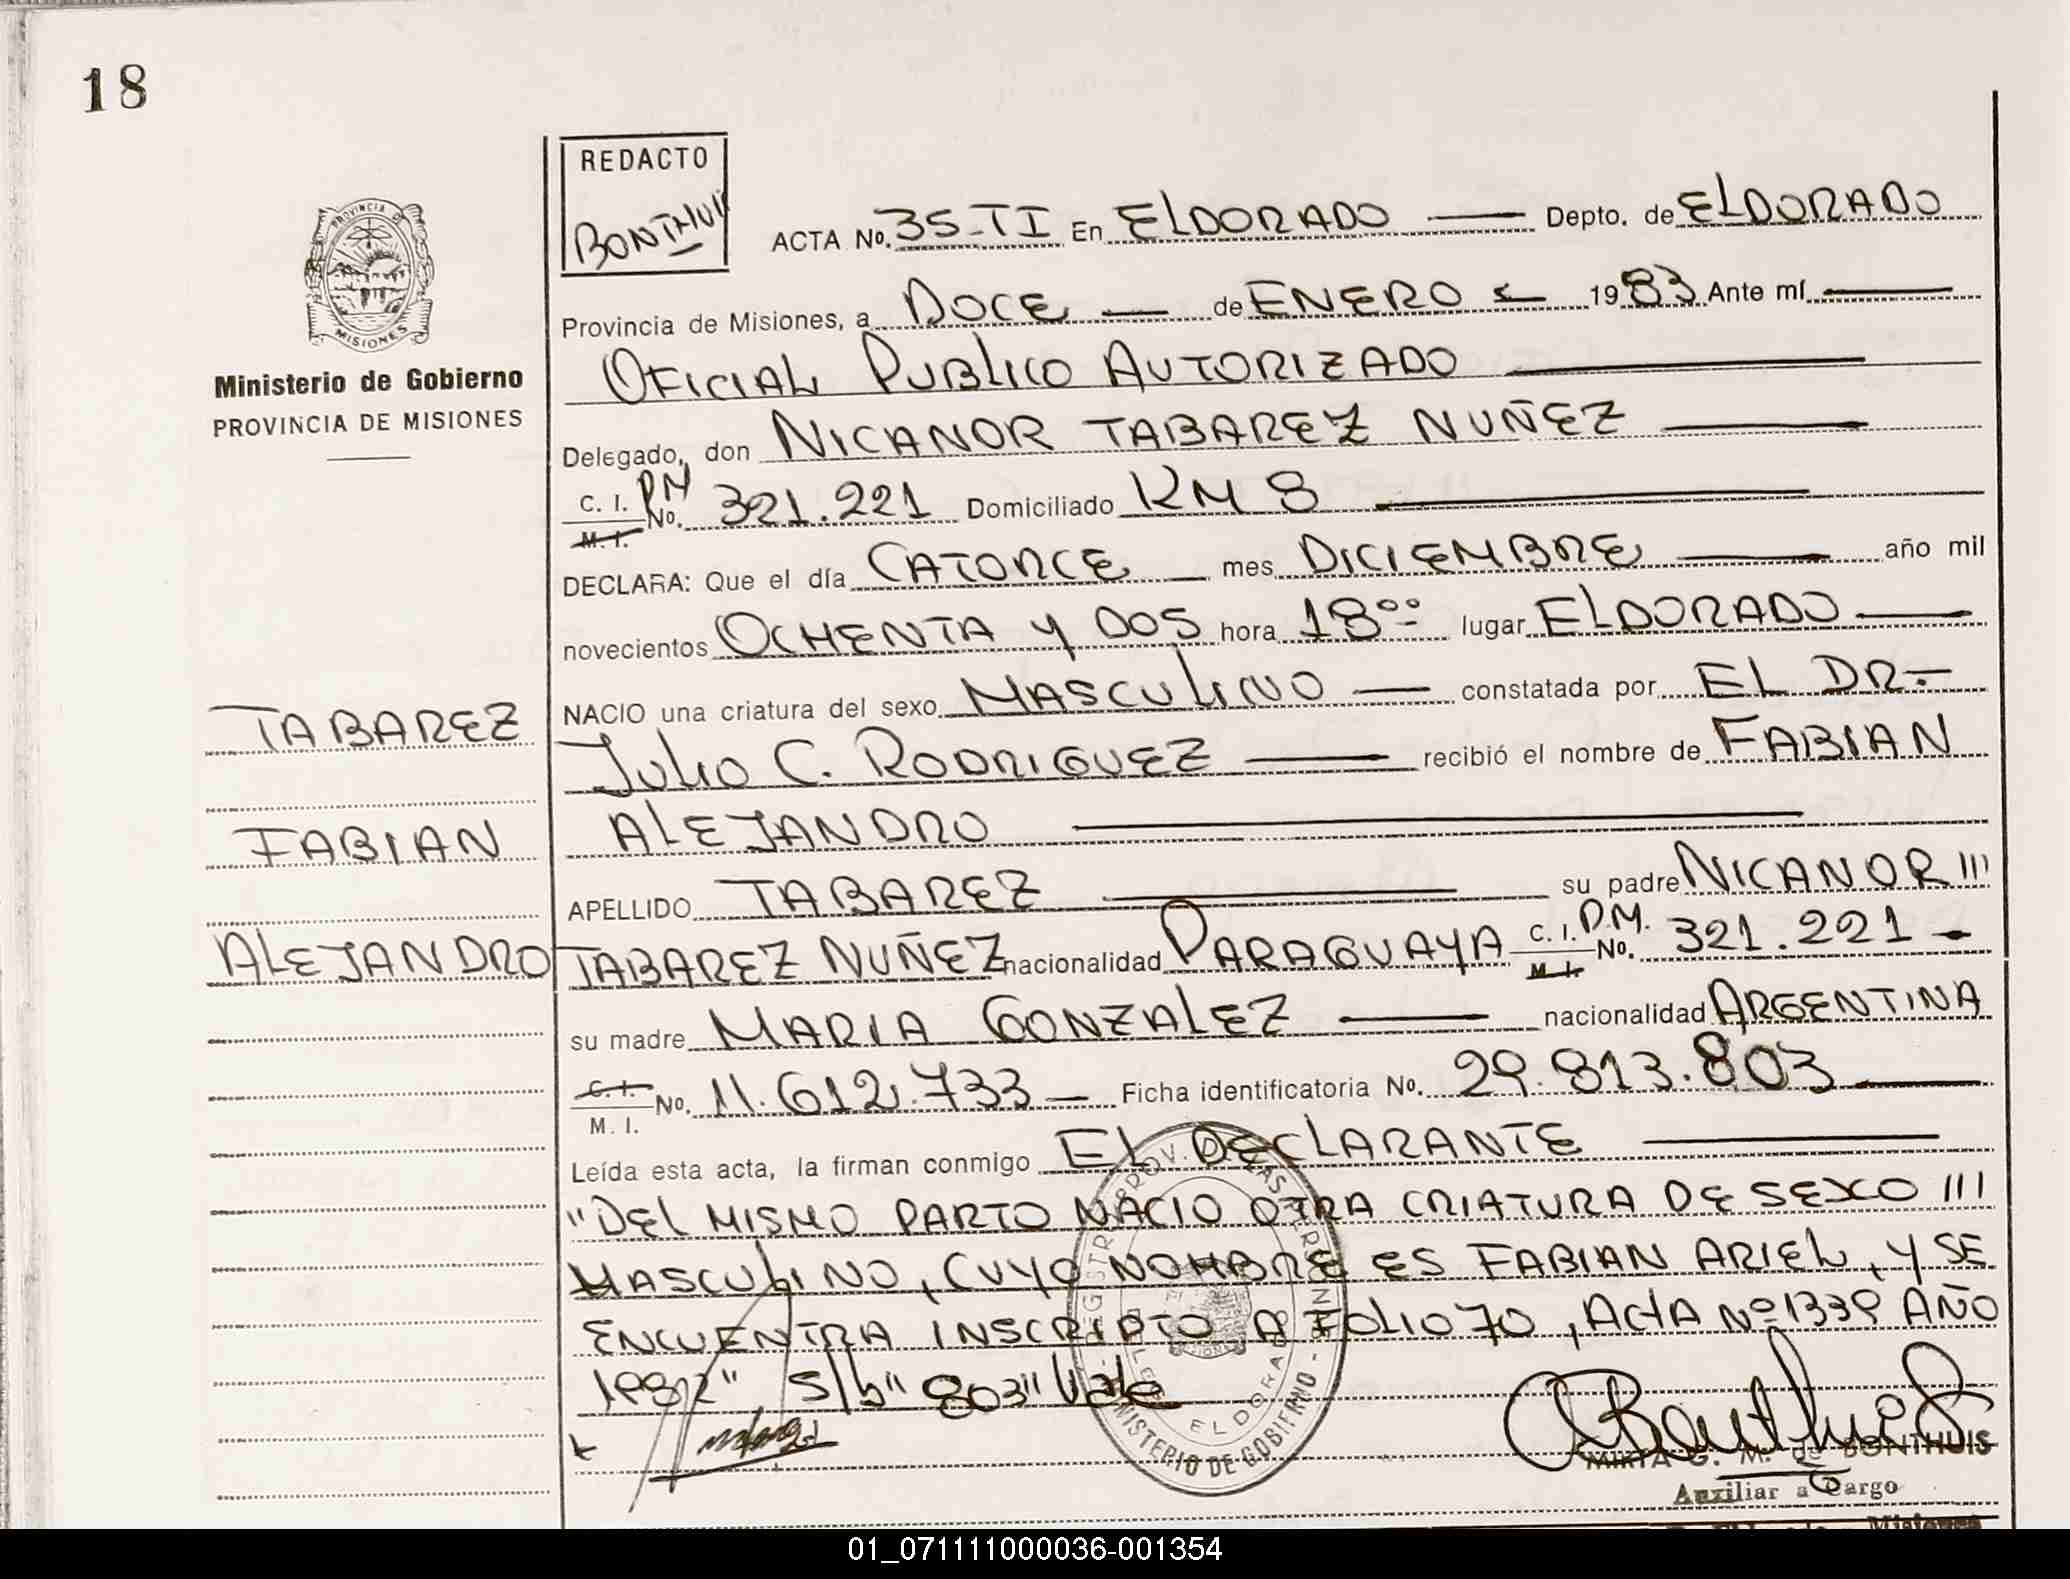 18
REDACTO
BONTHUI
ACTA No. 35-TI En ELDORADO — Depto. de ELDORADO
Provincia de Misiones, a DOCE — de ENERO — 1983 Ante mí —
OFICIAL PUBLICO AUTORIZADO —
Delegado, don NICANOR TABAREZ NUÑEZ —
C. I. PM
M. I. No. 321.221 Domiciliado KM 8 —
DECLARA: Que el día CATORCE — mes DICIEMBRE — año mil
novecientos OCHENTA Y DOS hora 18°° lugar ELDORADO —
NACIO una criatura del sexo MASCULINO — constatada por EL DR.-
JULIO C. RODRIGUEZ — recibió el nombre de FABIAN
ALEJANDRO —
APELLIDO TABAREZ — su padre NICANOR III
TABAREZ NUÑEZ nacionalidad PARAGUAYA C. I. P.M. M. I. No. 321.221 -
su madre MARIA GONZALEZ — nacionalidad ARGENTINA
C. I. M. I. No. 11.612.733 — Ficha identificatoria No. 29.813.803 —
Leída esta acta, la firman conmigo EL DECLARANTE —
"DEL MISMO PARTO NACIO OTRA CRIATURA DE SEXO III
MASCULINO, CUYO NOMBRE ES FABIAN ARIEL, Y SE
ENCUENTRA INSCRIPTO A FOLIO 70, ACTA Nº 1339 AÑO
1982" S/b "803" Vale
MIRTA G. M. de BONTHUIS
Auxiliar a Cargo
PROVINCIA DE
MISIONES
Ministerio de Gobierno
PROVINCIA DE MISIONES
TABAREZ
FABIAN
ALEJANDRO
ELDORADO
MINISTERIO DE GOBIERNO
01_071111000036-001354